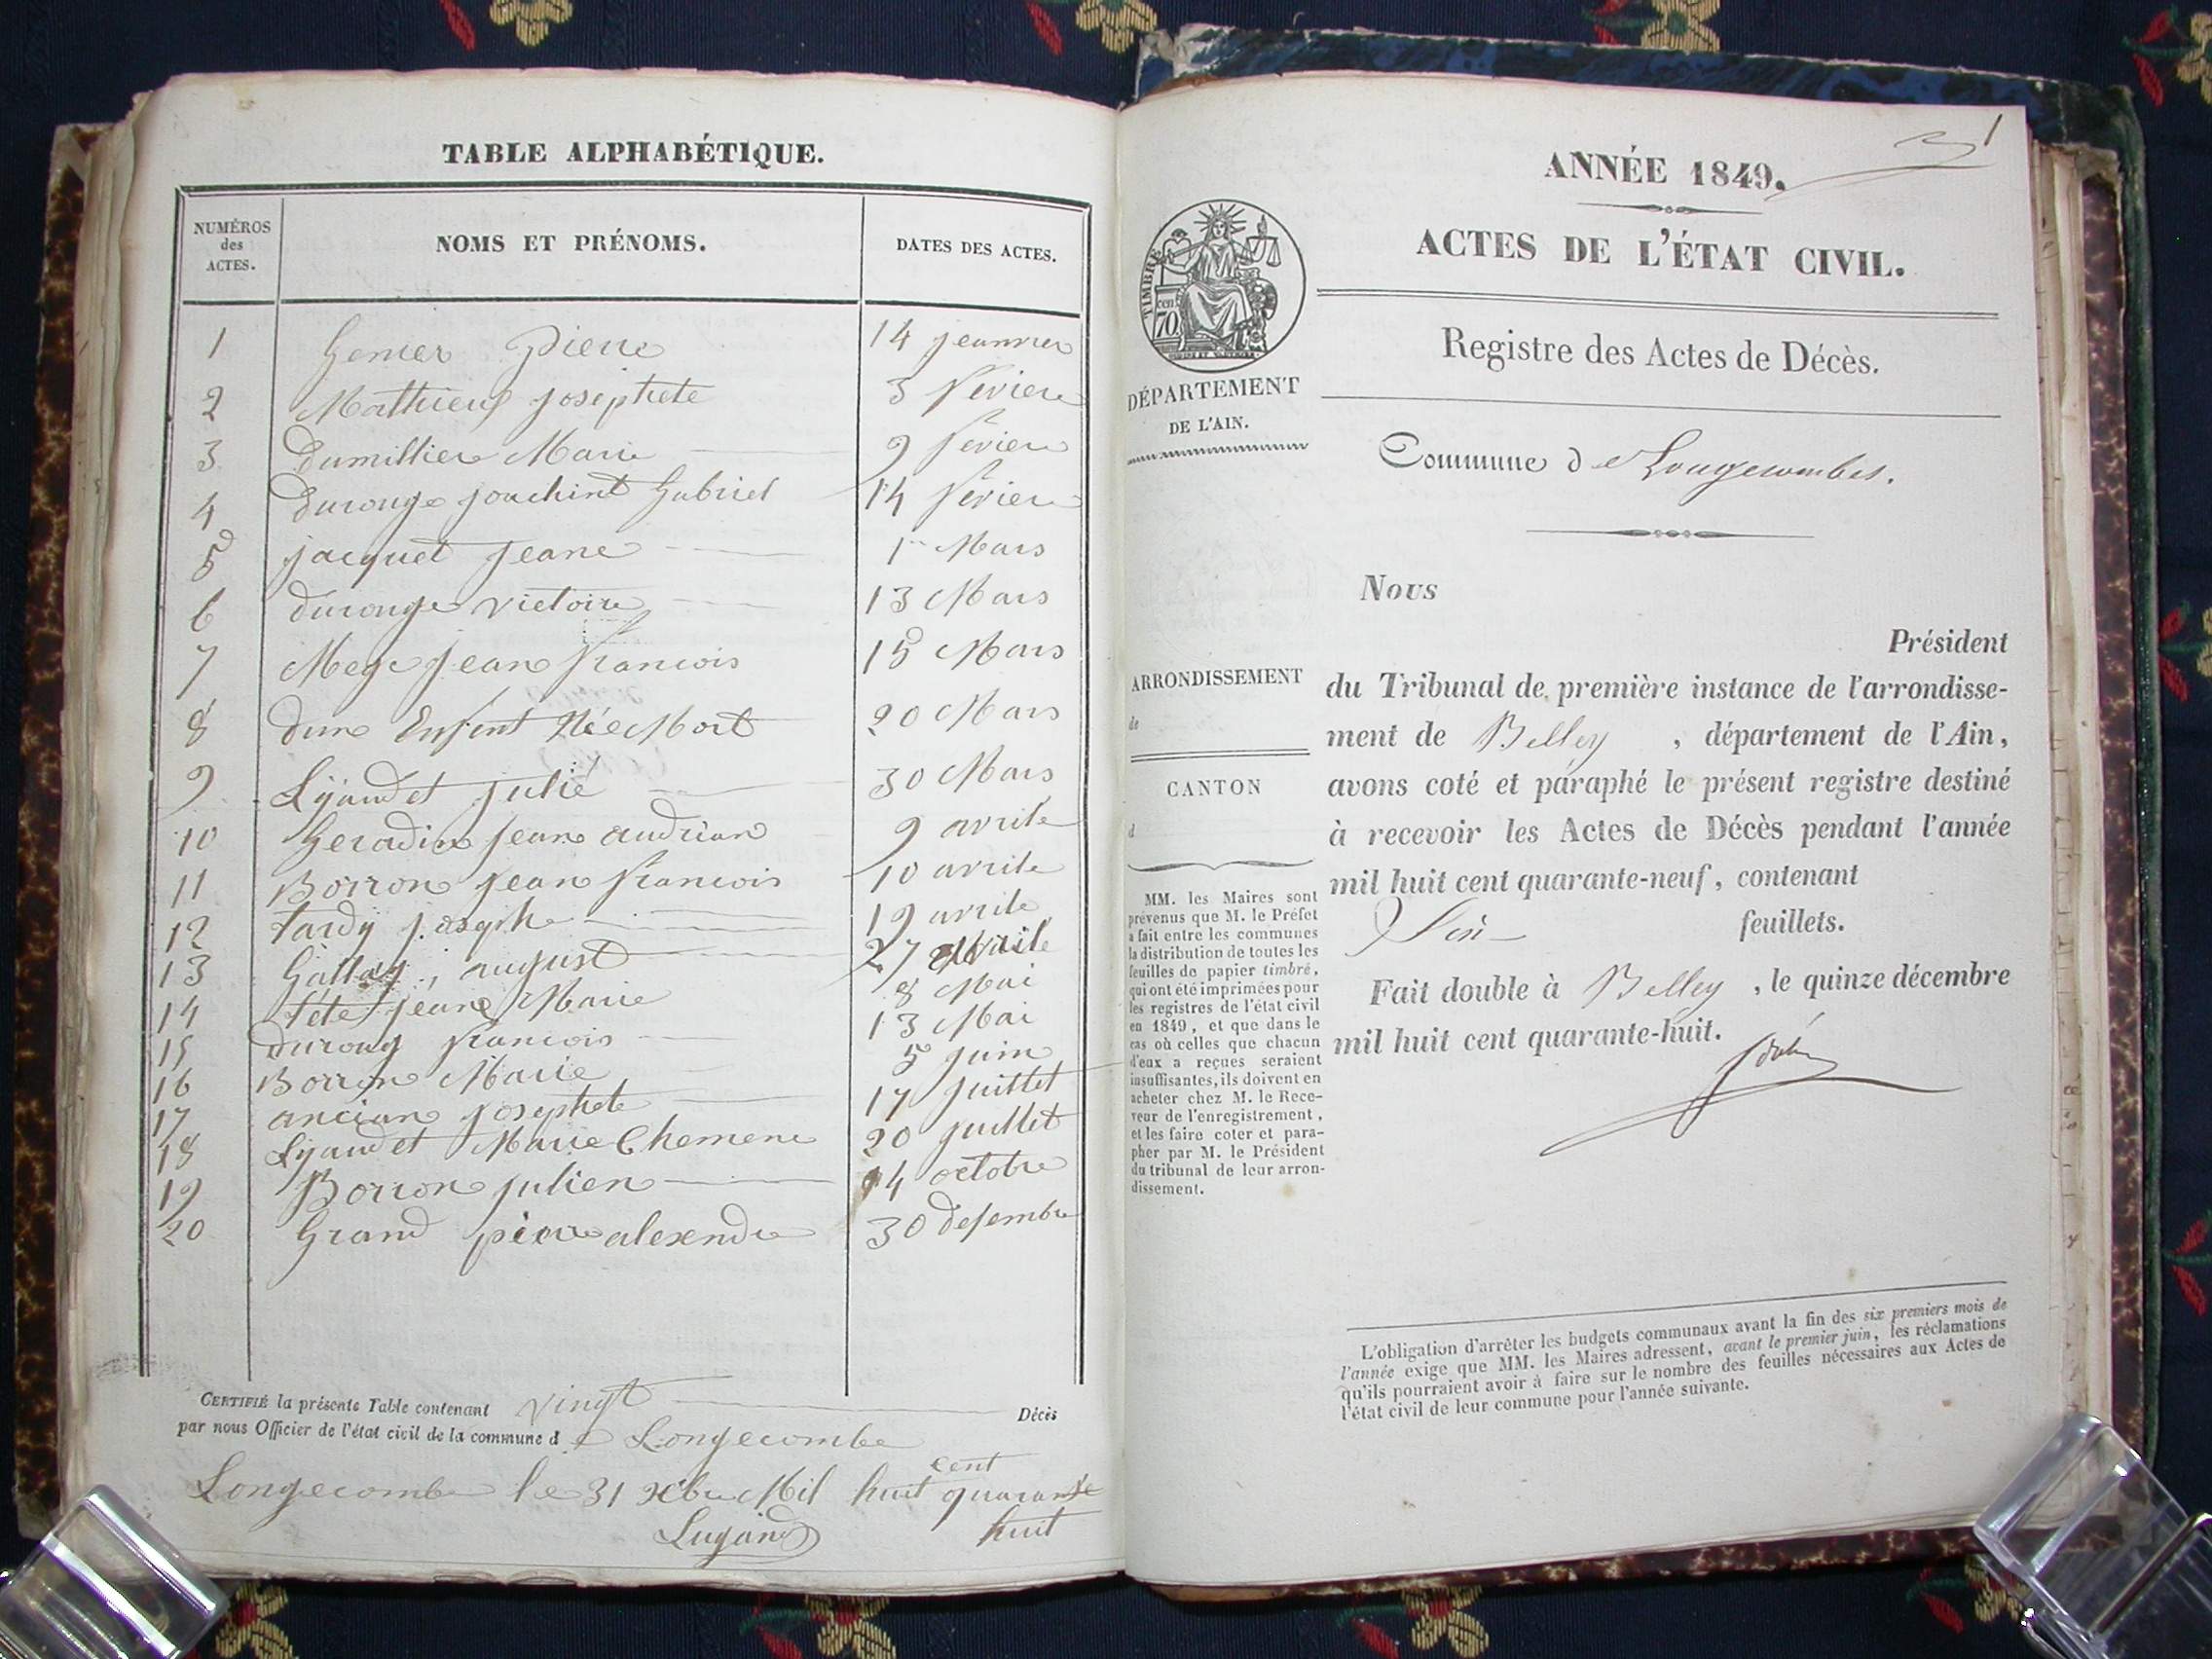 TABLE ALPHABÉTIQUE.
NUMÉROS des ACTES. NOMS ET PRÉNOMS. DATES DES ACTES.
1 Genier Pierre 14 jeanvier
2 Mathieux josephete 3 févier
3 Dumillier Marie 9 févier
4 Durouge jouchint Gabriel 14 févier
5 jacquet jeane 1er Mars
6 durouge victoire 13 Mars
7 Mege jean francois 15 Mars
8 dun Enfent Née Mort 20 Mars
9 Lyaudet julie 30 Mars
10 Geradin jean audrian 9 avrile
11 Borron jean francois 10 avrile
12 tardy joseph 19 avrile
13 Gallay, august 27 avrile
14 téte jeane Marie 8 Mai
15 durouge francois 13 Mai
16 Borron Marie 5 juin
17 ancian josephete 17 juillet
18 Lyaudet Marie Chemene 20 juillet
19 Borron julien 14 octobre
20 Grand pierre alexendre 30 desembre
CERTIFIÉ la présente Table contenant vingt Décès
par nous Officier de l'état civil de la commune de Longecombe
Longecombe le 31 Xbre Mil huit cent quarante
huit
Lugand
1
ANNÉE 1849.
ACTES DE L'ÉTAT CIVIL.
TIMBRE
cen
70
Registre des Actes de Décès.
DÉPARTEMENT
DE L'AIN.
Commune de Longecombes.
Nous
Président
ARRONDISSEMENT
de
CANTON
d
du Tribunal de première instance de l'arrondisse-
ment de Belley, département de l'Ain,
avons coté et paraphé le présent registre destiné
à recevoir les Actes de Décès pendant l'année
mil huit cent quarante-neuf, contenant
Six feuillets.
Fait double à Belley, le quinze décembre
mil huit cent quarante-huit.
MM. les Maires sont
prévenus que M. le Préfet
a fait entre les communes
la distribution de toutes les
feuilles de papier timbré,
qui ont été imprimées pour
les registres de l'état civil
en 1849, et que dans le
cas où celles que chacun
d'eux a reçues seraient
insuffisantes, ils doivent en
acheter chez M. le Rece-
veur de l'enregistrement,
et les faire coter et para-
pher par M. le Président
du tribunal de leur arron-
dissement.
L'obligation d'arrêter les budgets communaux avant la fin des six premiers mois de
l'année exige que MM. les Maires adressent, avant le premier juin, les réclamations
qu'ils pourraient avoir à faire sur le nombre des feuilles nécessaires aux Actes de
l'état civil de leur commune pour l'année suivante.